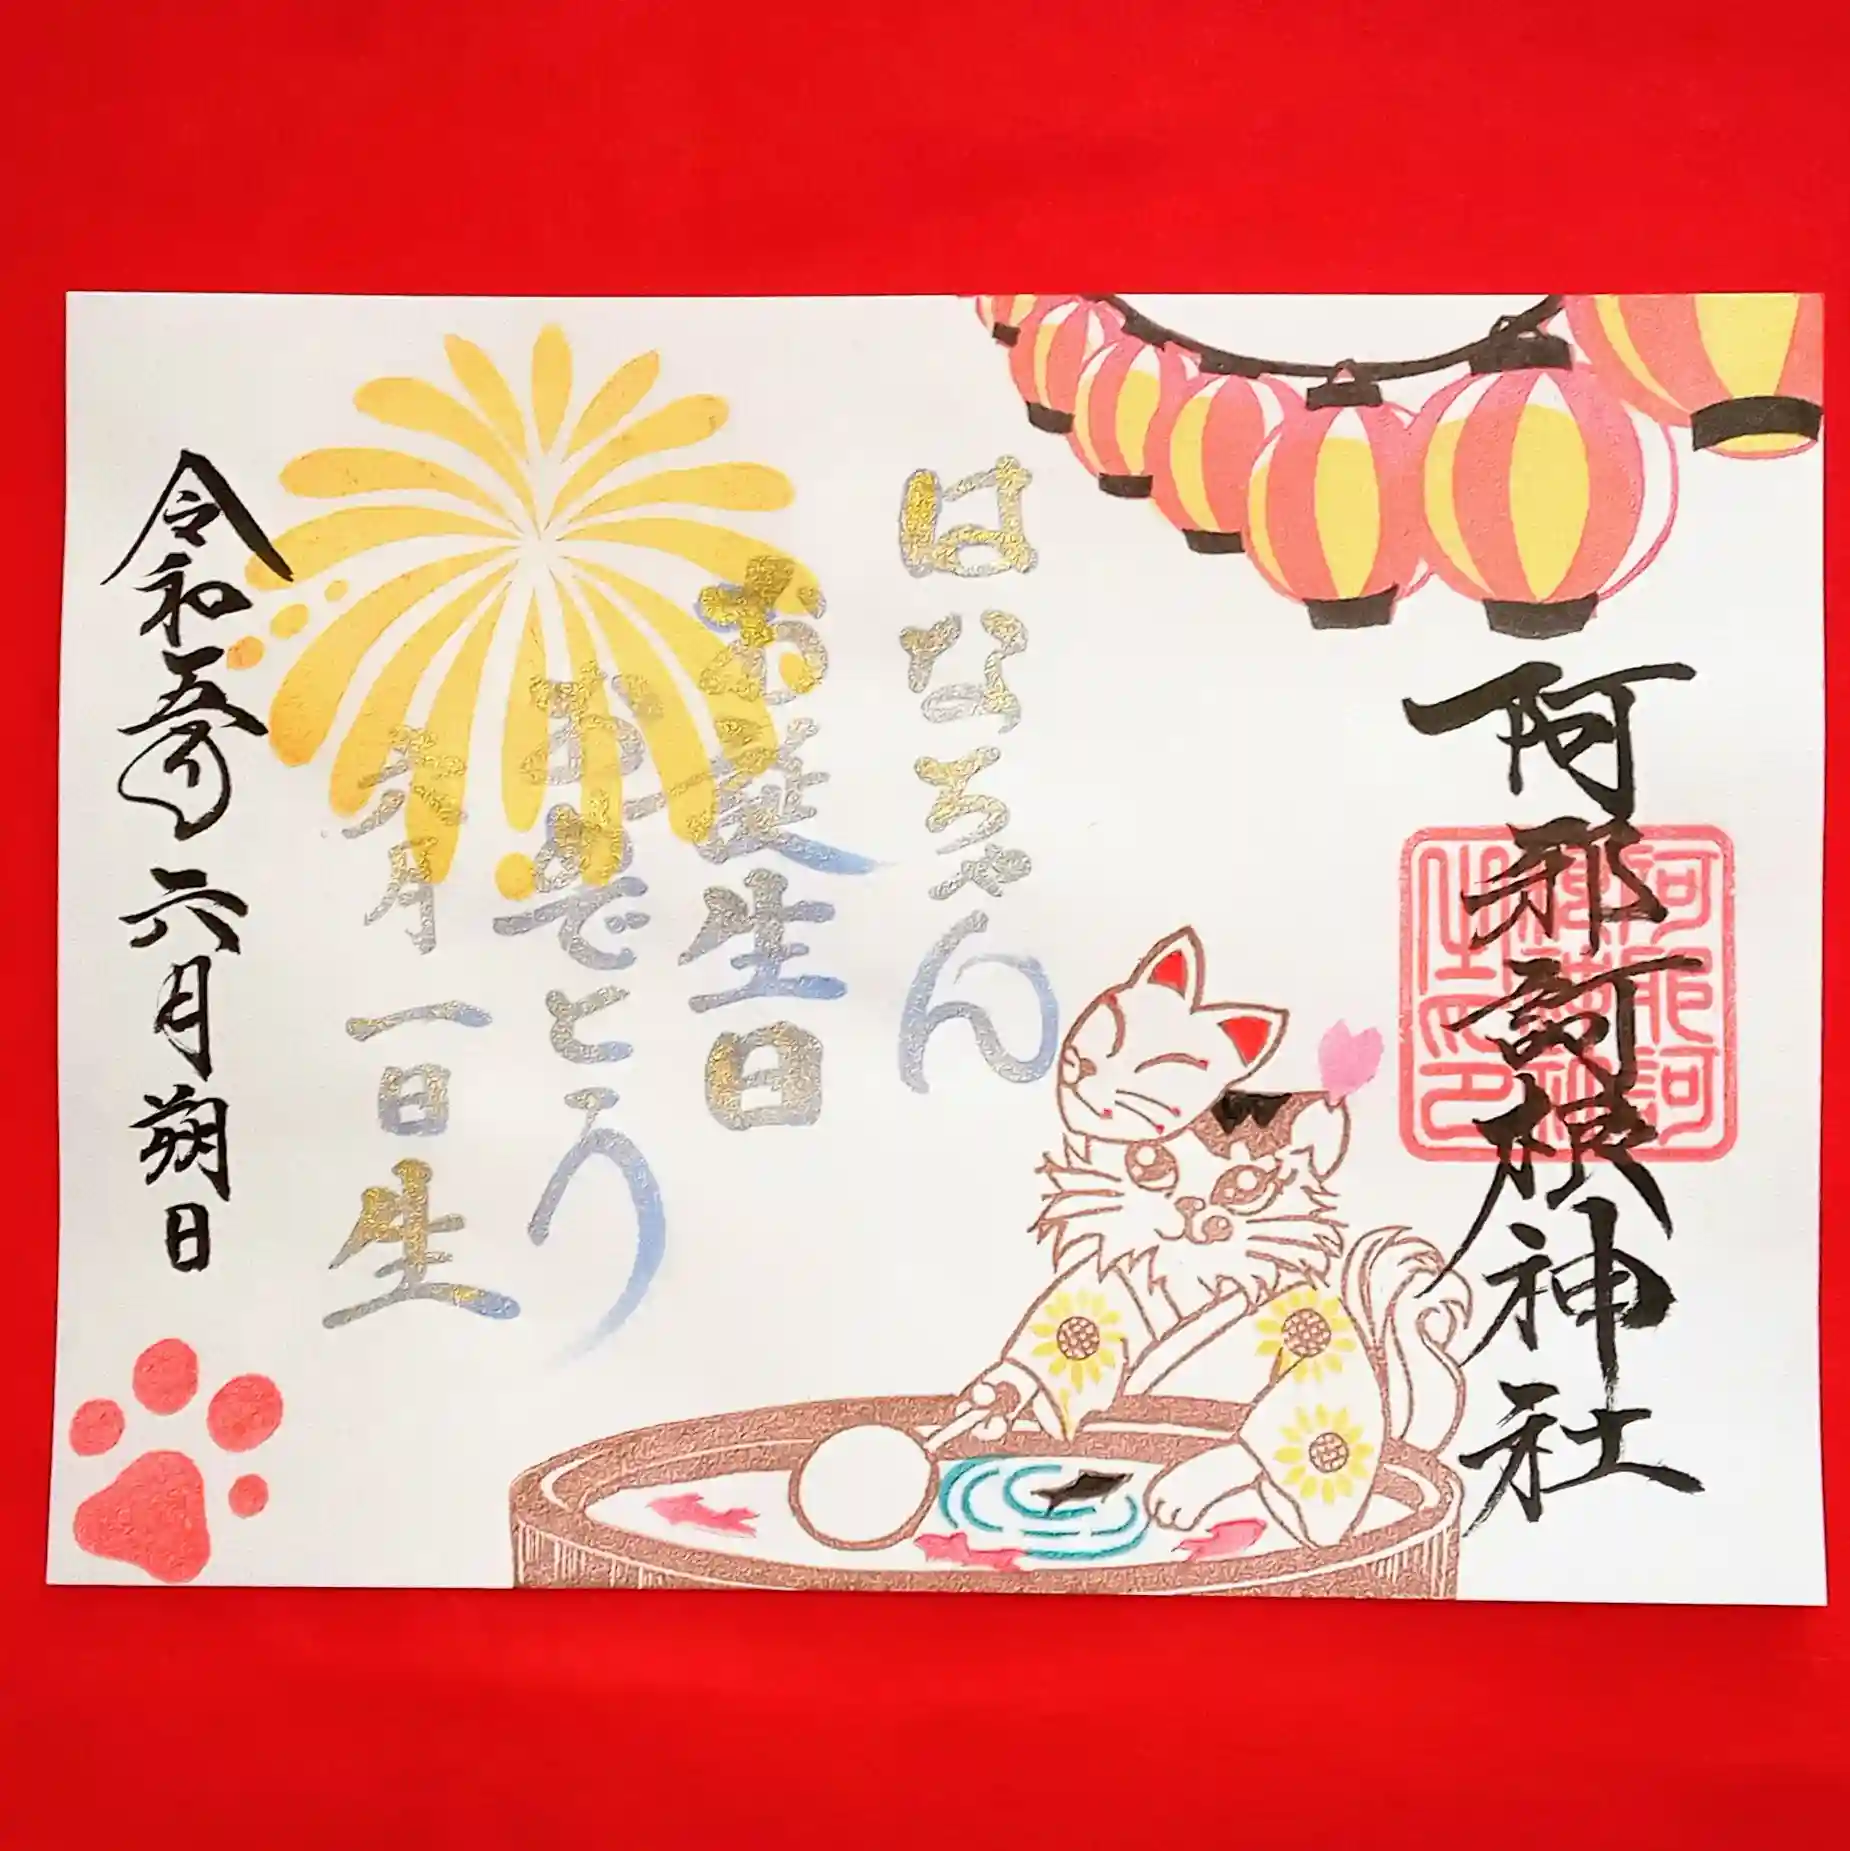 阿邪訶根神社
はなちゃん
お誕生日
おめでとう
月一日生
令和五年六月朔日